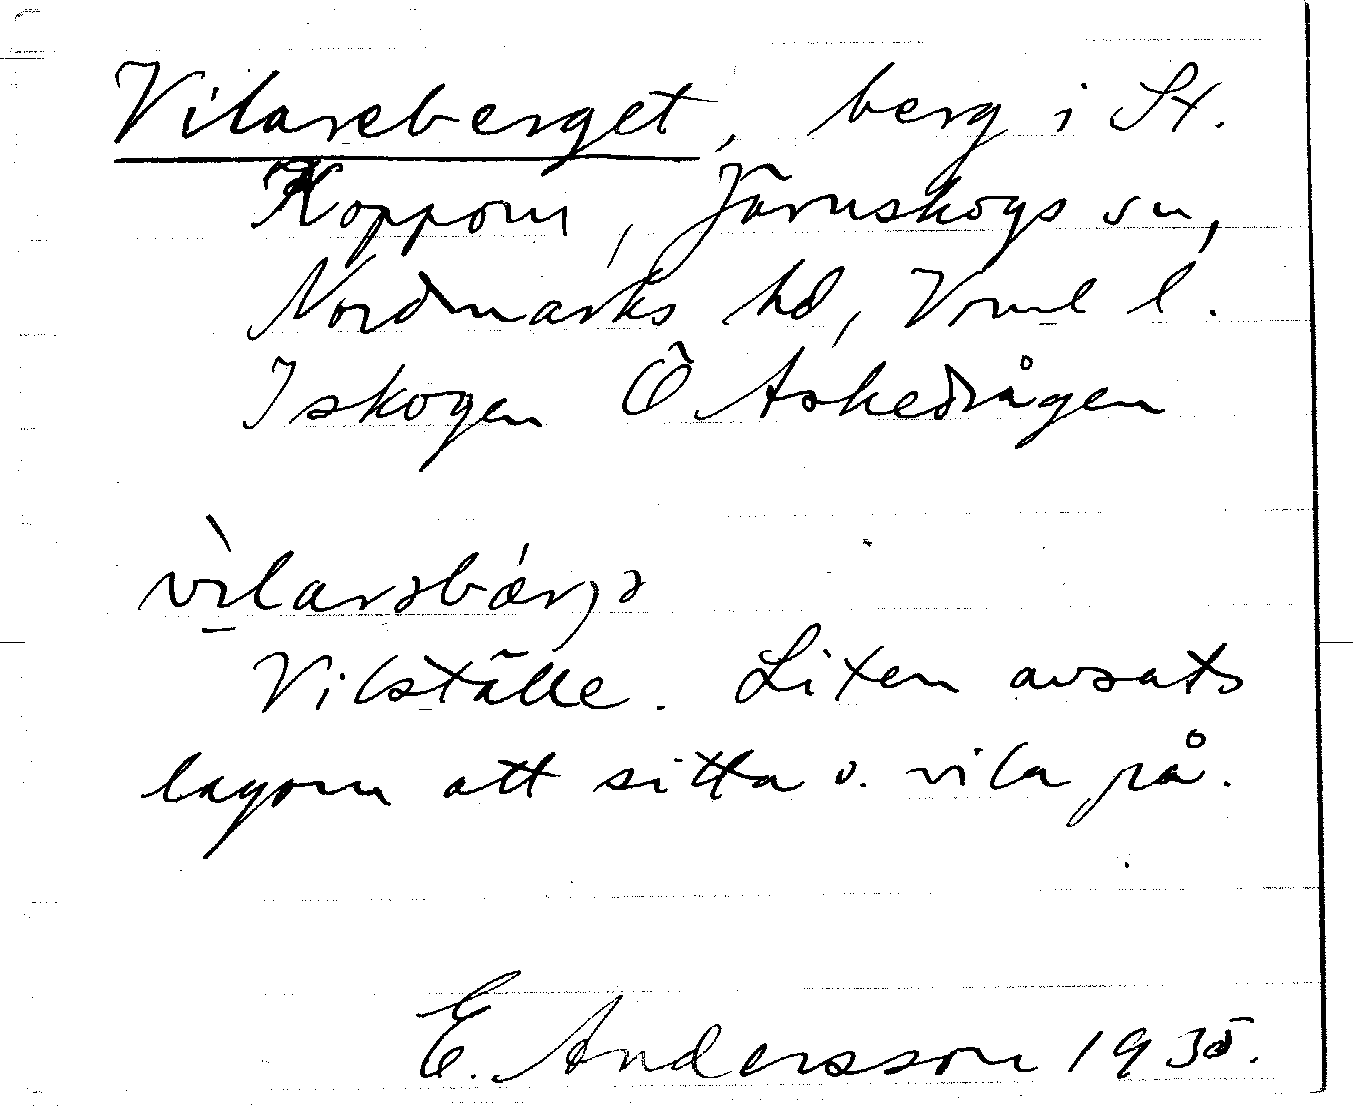 Vilareberget, berg i St.
Koppom, Järnskogs sn,
Nordmarks hd, Vrml l.
I skogen Ö Askedrågen
vìlarəbárjə
Vilställe. Liten avsats
lagom att sitta o. vila på.
E. Andersson 1935.